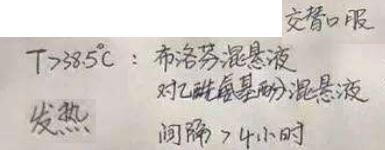 交替口服
T>38.5℃：布洛芬混悬液
对乙酰氨基酚混悬液
发热
间隔>4小时